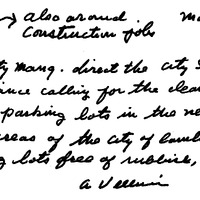 → also around. Mo
Construction jobs
ty mang. direct the city
ance calling for the clean
parking lots in the ne
areas of the city of
g lots free of rubbish,
a